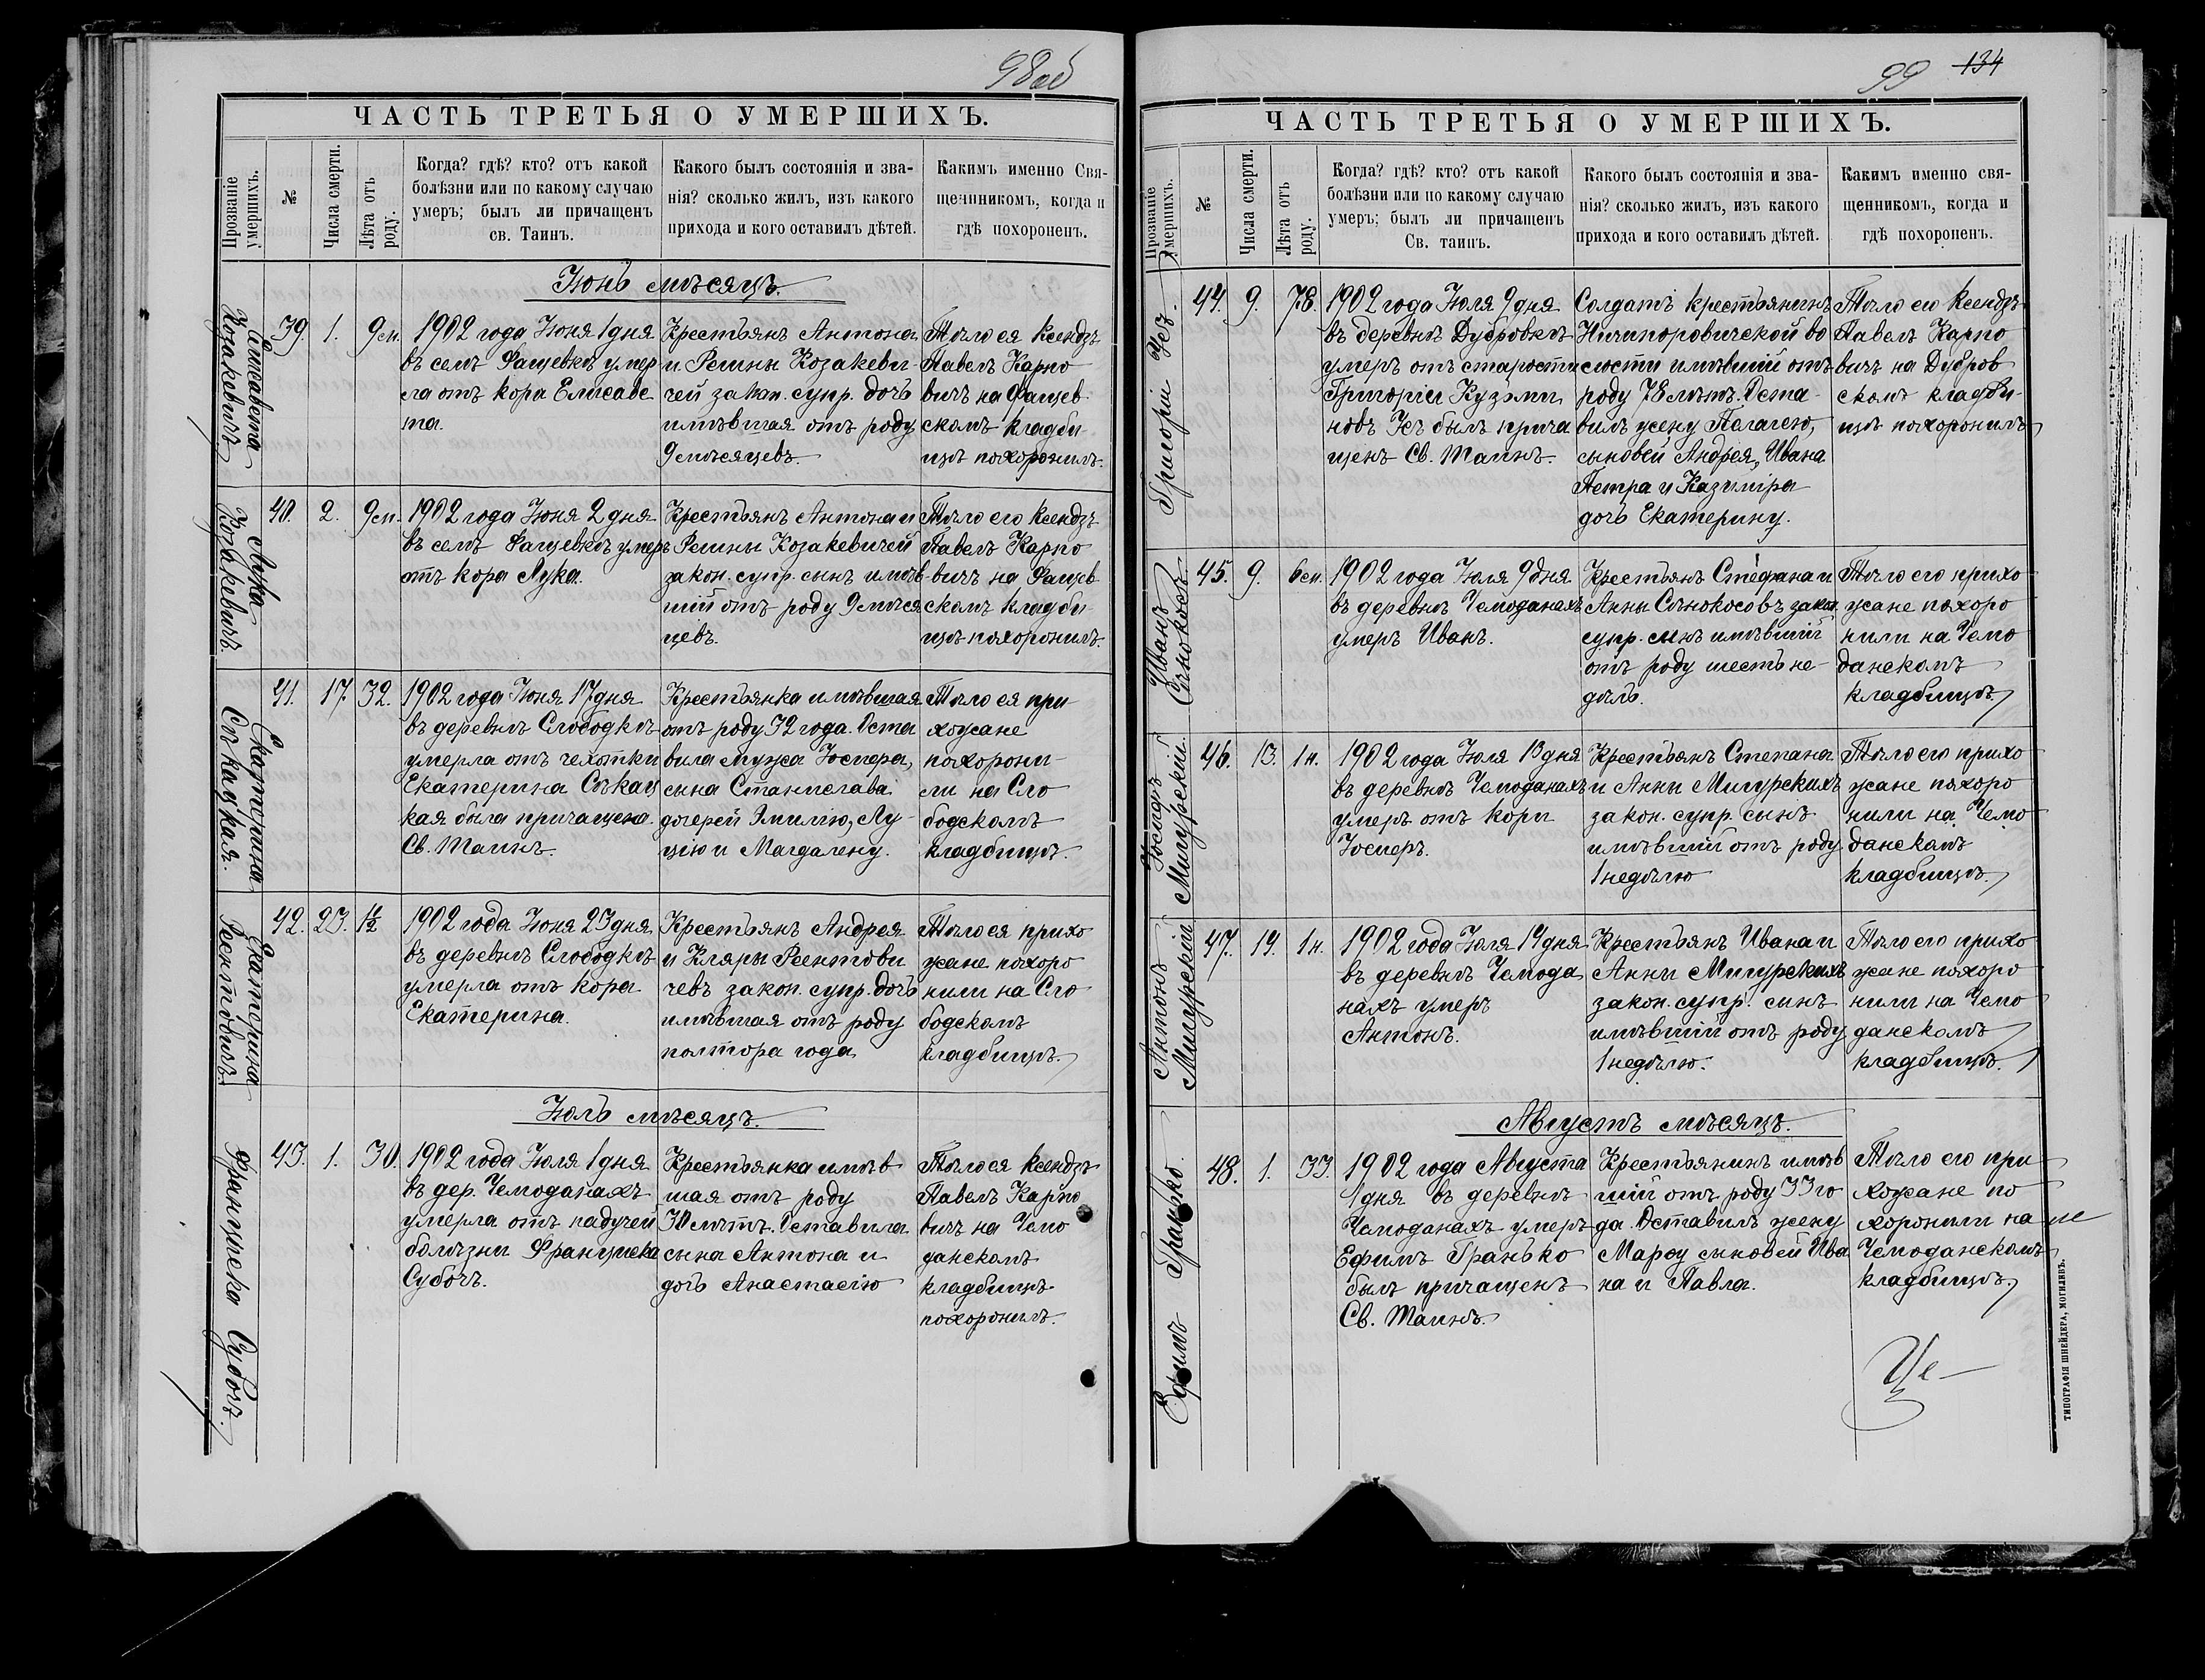 98об
ЧАСТЬ ТРЕТЬЯ О УМЕРШИХЪ.
Прозваніе умершихъ.
№
Числа смерти.
Лѣта отъ роду.
Когда? гдѣ? кто? отъ какой
болѣзни или по какому случаю
умеръ; былъ ли причащенъ
св. Таинъ.
Какого былъ состоянія и зва-
нія? сколько жилъ, изъ какого
прихода и кого оставилъ дѣтей.
Какимъ именно Свя-
щенникомъ, когда и
гдѣ похороненъ.
Іюнь мѣсяцъ.
Елисавета
Козакевичъ
39. 1. 9 м.
1902 года Іюня 1 дня
въ селѣ Фащевкѣ умер
ла отъ кора Елисаве
та.
Крестьянъ Антона
и Регины Козакеви
чей закон. супр. дочь
имѣвшая отъ роду
9 мѣсяцевъ.
Тѣло ея Ксендзъ
Павелъ Карпо
вичъ на Фащев
скомъ кладби
щѣ похоронилъ.
Лука
Козакевичъ.
40. 2. 9 м.
1902 года Іюня 2 дня
въ селѣ Фащевкѣ умеръ
отъ кора Лука.
Крестьянъ Антона и
Регины Козакевичей
закон. супр. сынъ имѣв
шій отъ роду 9 мѣся
цевъ.
Тѣло его Ксендзъ
Павелъ Карпо
вичъ на Фащев
скомъ кладби
щѣ похоронилъ.
Екатерина
Сѣкацкая.
41. 17 32.
1902 года Іюня 17 дня
въ деревнѣ Слободкѣ
умерла отъ чехотки
Екатерина Сѣкац
кая была причащена
Св. Таинъ.
Крестьянка имѣвшая
отъ роду 32 года. Оста
вила мужа Іосифа,
сына Станислава
дочерей Эмилію, Лу-
цію и Магдалену.
Тѣло ея при-
хожане
похорони-
ли на Сло
бодскомъ
кладбищѣ.
Екатерина
Рентовичъ.
42. 23. 1½
1902 года Іюня 23 дня
въ деревнѣ Слободкѣ
умерла отъ кора
Екатерина.
Крестьянъ Андрея
и Кляры Рентови
чевъ закон. супр. дочь
имѣвшая отъ роду
полтора года
Тѣло ея прихо
жане похоро
нили на Сло
бодскомъ
кладбищѣ.
Іюль мѣсяцъ.
Франциска Субочъ.
43. 1. 30.
1902 года Іюля 1 дня
въ дер. Чемоданахъ
умерла отъ падучей
болѣзни Франциска
Субочъ.
Крестьянка имѣв
шая отъ роду
30 лѣтъ. Оставила
сына Антона и
дочь Анастасію
Тѣло ея Ксендзъ
Павелъ Карпо
вичъ на Чемо
данскомъ
кладбищѣ
похоронилъ.
99 134
ЧАСТЬ ТРЕТЬЯ О УМЕРШИХЪ.
Прозваніе умершихъ.
№
Числа смерти.
Лѣта отъ роду.
Когда? гдѣ? кто? отъ какой
болѣзни или по какому случаю
умеръ; былъ ли причащенъ
Св. таинъ.
Какого былъ состоянія и зва-
нія? сколько жилъ, изъ какого
прихода и кого оставилъ дѣтей.
Какимъ именно свя-
щенникомъ, когда и
гдѣ похороненъ.
Григорій
44. 9. 78.
1902 года Іюля 9 дня
въ деревнѣ Дубровкѣ
умеръ отъ старости
Григорій Кузьми
новъ былъ прича
щенъ Св. Таинъ.
Солдатъ крестьянинъ
Ничипоровичской во
лости имѣвшій отъ
роду 78 лѣтъ. Оста-
вилъ жену Пелагею,
сыновей Андрея, Ивана
Петра и Казиміра
дочь Екатерину.
Тѣло его Ксендзъ
Павелъ Карпо
вичъ на Дубров
скомъ кладби-
щѣ похоронилъ
Иванъ
Сѣнокосъ.
45. 9. 6 н.
1902 года Іюля 9 дня
въ деревнѣ Чемоданахъ
умеръ Иванъ.
Крестьянъ Стефана и
Анны Сѣнокосовъ закон.
супр. сынъ имѣвшій
отъ роду шесть не-
дѣль.
Тѣло его прихо
жане похоро
нили на Чемо
данскомъ
кладбищѣ
Іосифъ
Мигурскій.
46. 13. 1 н.
1902 года Іюля 13 дня
въ деревнѣ Чемоданахъ
умеръ отъ кори
Іосифъ.
Крестьянъ Степана
и Анны Мигурскихъ
закон. супр. сынъ
имѣвшій отъ роду
1 недѣлю
Тѣло его прихо
жане похоро
нили на Чемо
данскомъ
кладбищѣ.
Антонъ
Мигурскій
47. 19. 1 н.
1902 года Іюля 19 дня
въ деревнѣ Чемода
нахъ умеръ
Антонъ.
Крестьянъ Ивана и
Анны Мигурскихъ
закон. супр. сынъ
имѣвшій отъ роду
1 недѣлю.
Тѣло его прихо
жане похоро
нили на Чемо
данскомъ
кладбищѣ.
Августъ мѣсяцъ.
Ефимъ Гранько.
48. 1. 33.
1902 года Августа
1 дня въ деревнѣ
Чемоданахъ умеръ
Ефимъ Гранько
былъ причащенъ
Св. Таинъ.
Крестьянинъ имѣв
шій отъ роду 33 го
да. Оставилъ жену
Марфу сыновей Ива
на и Павла.
Тѣло его при
хожане по
хоронили на
Чемоданскомъ
кладбищѣ.
ТИПОГРАФІЯ ШНЕЙДЕРА, МОГИЛЕВЪ.